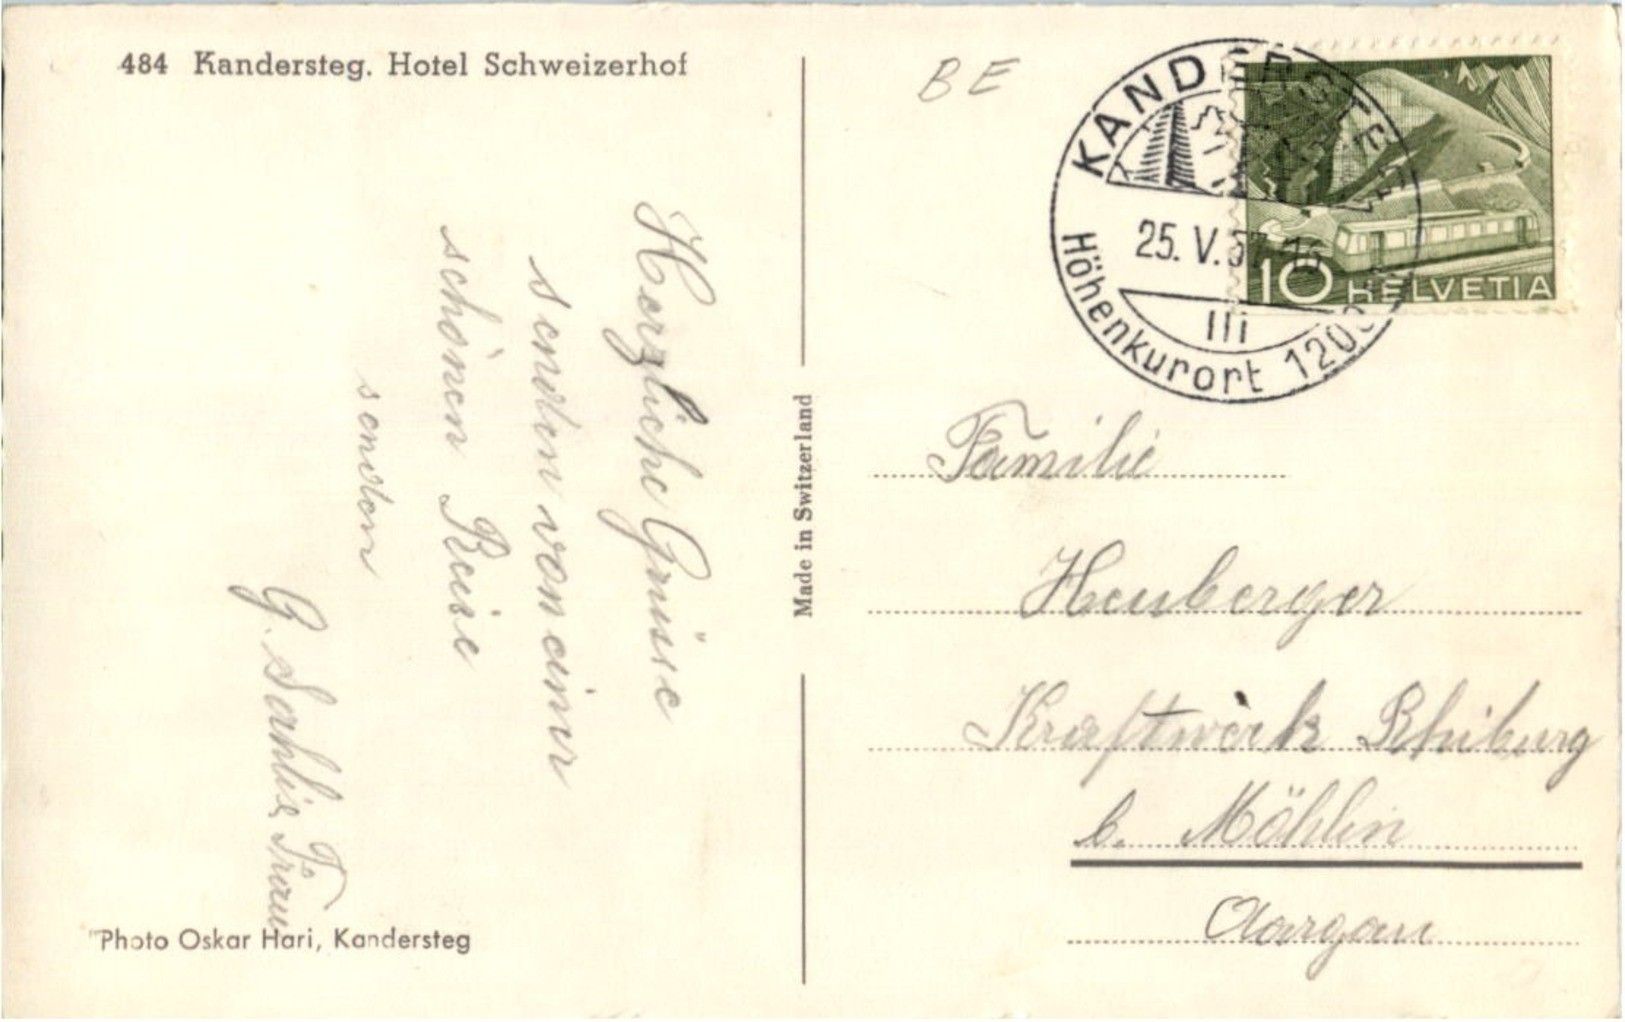 484 Kandersteg. Hotel Schweizerhof
BE
KANDERSTEG
25. V. 57. 16
Höhenkurort 1200
10 HELVETIA
Herzliche Grüsse
senden von einer
schönen Reise
senden
G. Sahli & Frau
Made in Switzerland
Familie
Heuberger
Kraftwerk Rhiburg
b. Möhlin
Aargau
Photo Oskar Hari, Kandersteg